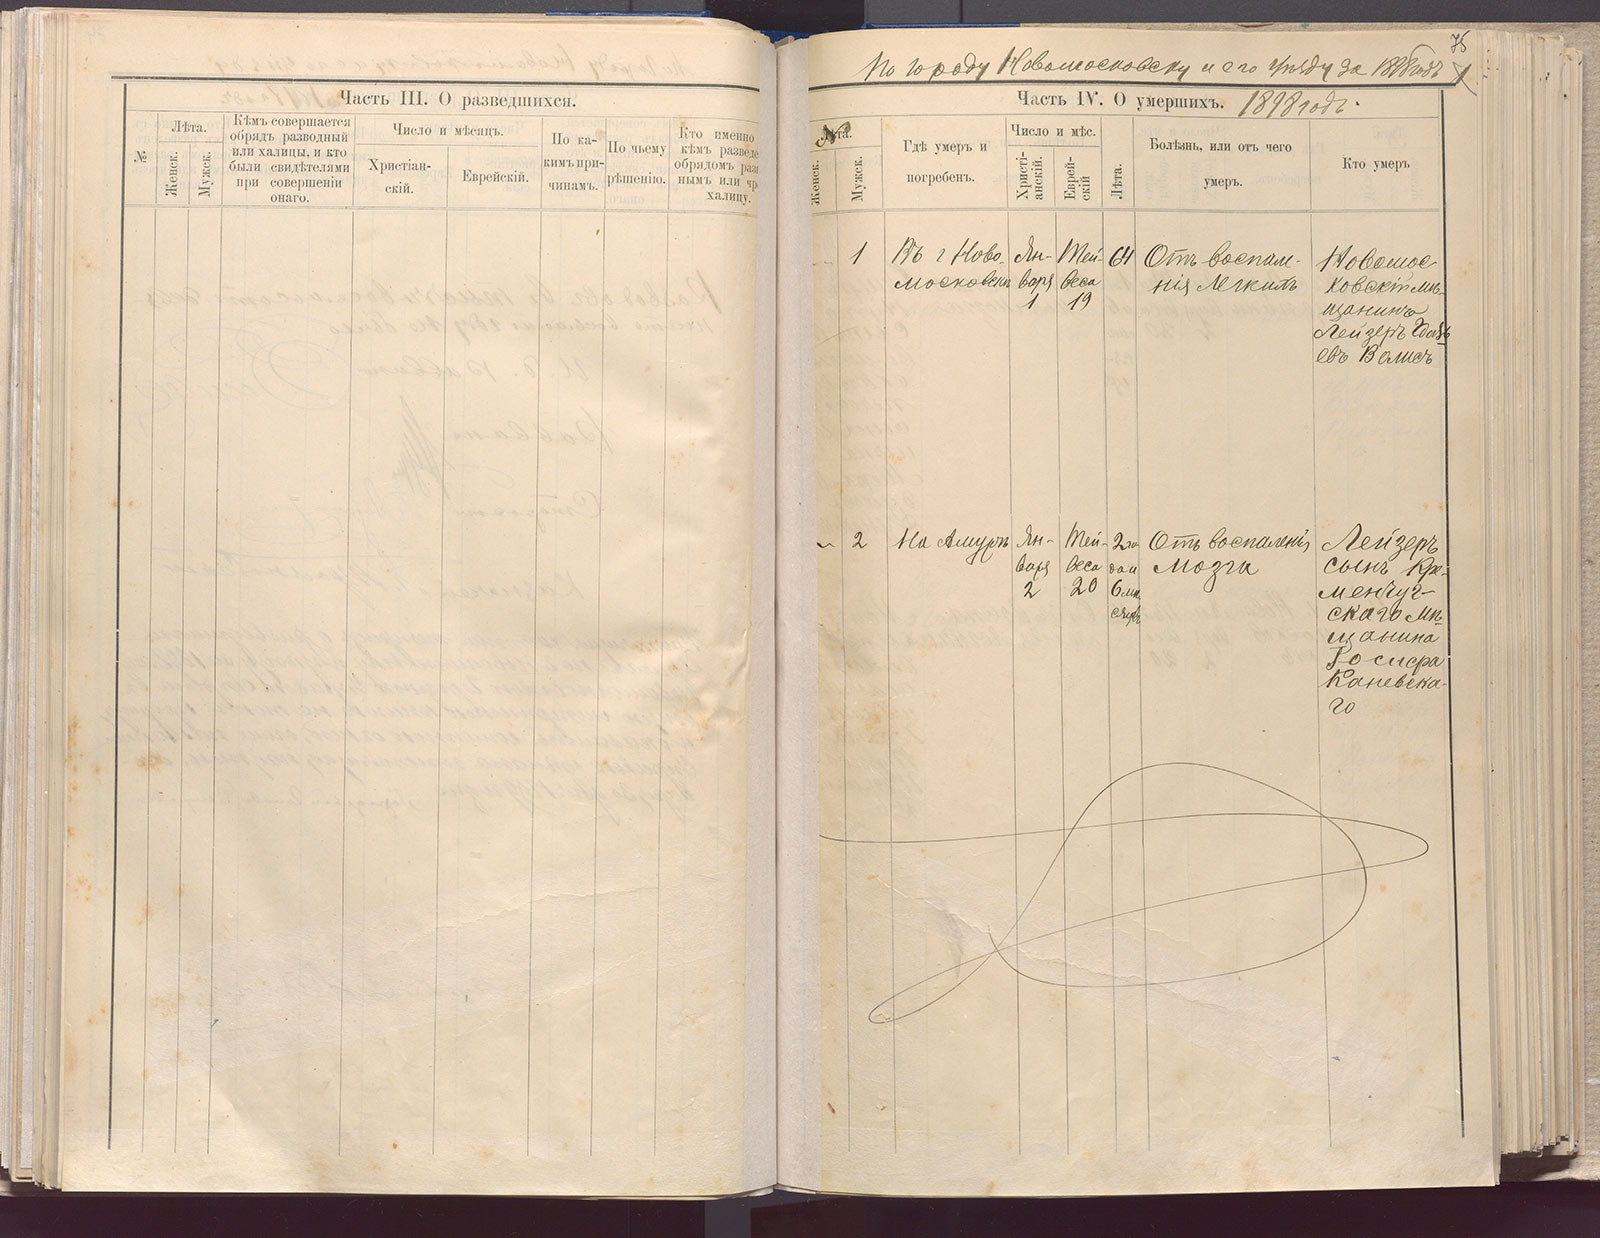 Часть III. О разведшихся.
№
Лѣта.
Женск.
Мужск.
Кѣмъ совершается
обрядъ разводный
или халицы, и кто
были свидѣтелями
при совершеніи
онаго.
Число и мѣсяцъ.
Христіан-
скій.
Еврейскій.
По ка-
кимъ при-
чинамъ.
По чьему
рѣшенію.
Кто именно
кѣмъ разведе
обрядомъ раз
нымъ или чр
халицу.
75
По городу Новомосковску и его уѣзду за 1898 годъ
Часть IV. О умершихъ. 1898 годъ.
№
Лѣта.
Женск.
Мужск.
Гдѣ умеръ и
погребенъ.
Число и мѣс.
Христі-
анскій.
Еврей-
скій
Лѣта.
Болѣзнь, или отъ чего
умеръ.
Кто умеръ
1
Въ г Ново-
московскѣ
Ян-
варя
1
Тей-
веса
19
64
Отъ воспале-
нія легкихъ
Новомос
ковскій мѣ-
щанинъ
Лейзеръ
евъ Велисъ
2
На Амурѣ
Ян-
варя
2
Тей-
веса
20
2 го
да и
6 мѣ
сяцъ
Отъ воспаленія
мозга
Лейзеръ
сынъ Кре-
менчуг-
скаго мѣ-
щанина
Каневска-
го